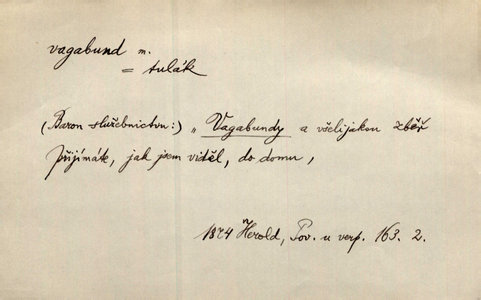 vagabund m.
= tulák
(Baron služebnictvu:) „Vagabundy a všelijakou zběř
přijímáte, jak jsem viděl, do domu,
1874 Herold, Pov. u verp. 163. 2.